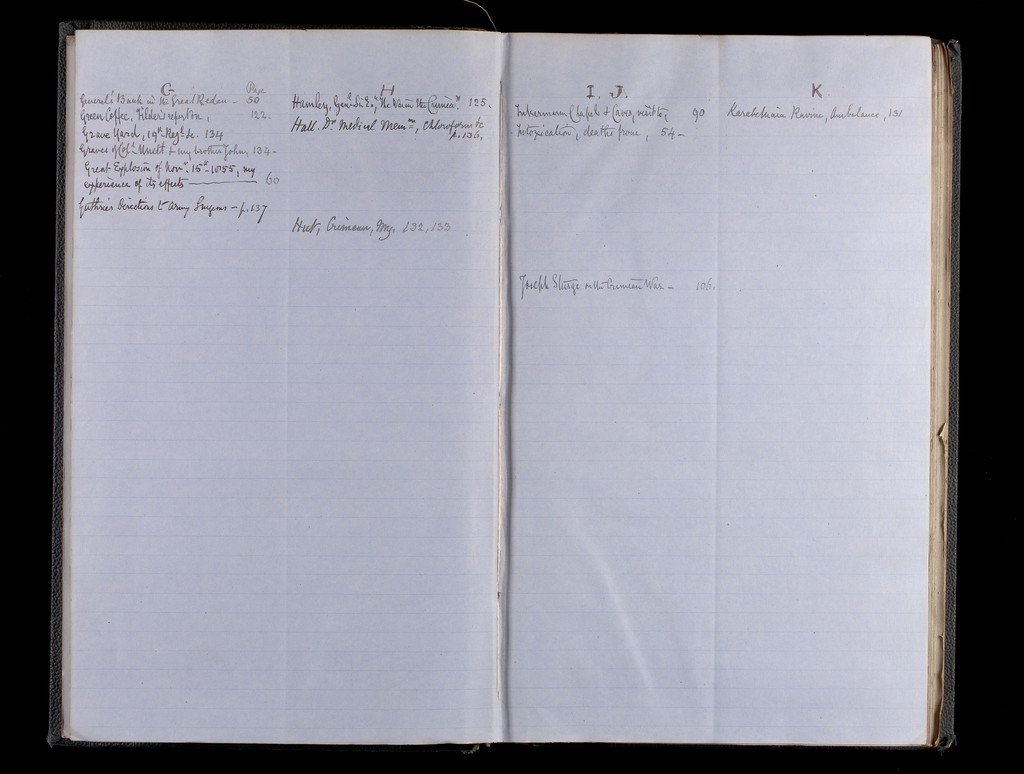 G
Page
General's Bunk in the Great Redan - 50
Green Coffee, Filder's report on, 122.
Grave Yard, 19th Regt. &c. 134
Graves of Col. Unett & my brother John, 134 -
Great Explosion of Novr. 15th - 1855, my
experience of its effects 60
Guthrie's Directions to Army Surgeons - p. 137
H
Hamley, Genl. Sir E., "The War in the Crimea". 125.
Hall. Dr. Medical Memm., Chloroform &c
p. 136.
Hut, Crimean, My. 132. 133
I. J.
Inkermann Chapel & Caves, visit to, 90
Intoxication, deaths from, 54 -
Joseph Sturge on the Crimean War - 106.
K.
Karabelnaia Ravine, Ambulance, 131